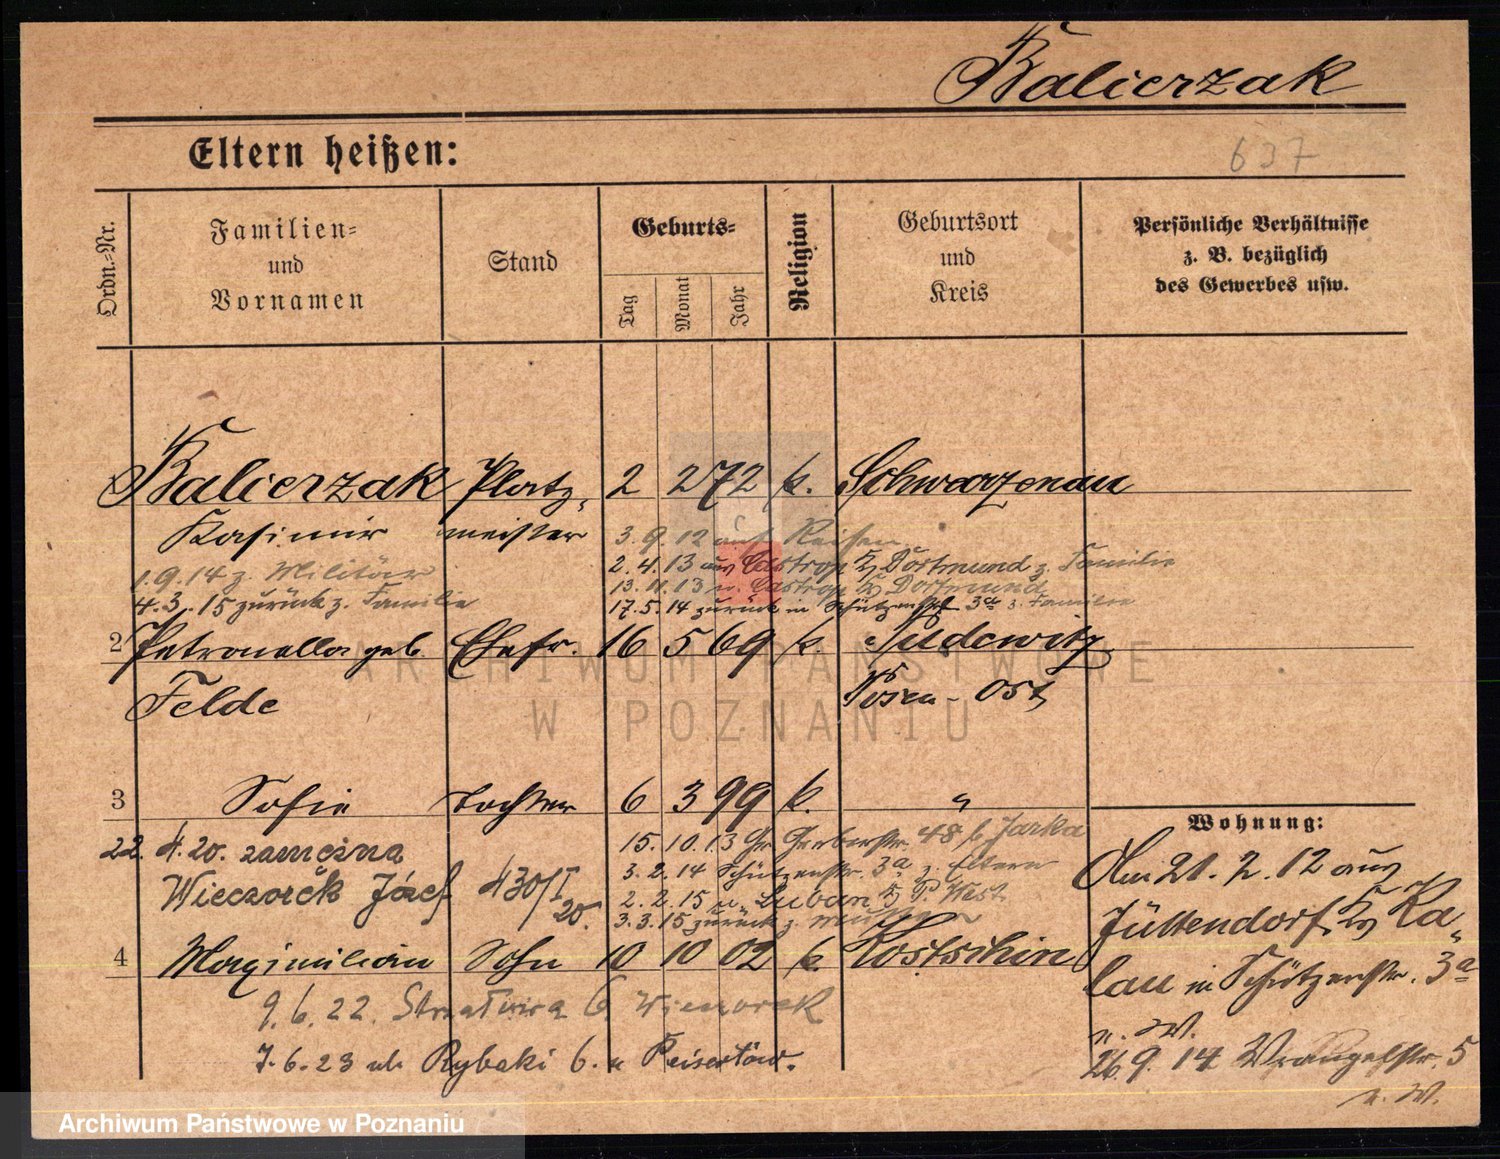 Balierzak
Eltern heißen:
637
Ordn.-Nr.
Familien-
und
Vornamen
Stand
Geburts-
Tag
Monat
Jahr
Religion
Geburtsort
und
Kreis
Persönliche Verhältnisse
z. B. bezüglich
des Gewerbes usw.
Balierzak Platz- 2 2 72 k. Schwarzenau
Kasimir meister
3.9.12 auf Reisen
1.9.14 z. Militär
2.4.13 aus Castrop Kr Dortmund z. Familie
13.11.13 n. Castrop Kr Dortmund
4.3.15 zurück z. Familie
17.5.14 zurück in Schützenstr 3a z. Familie
2 Petronella geb. Ehefr. 16 5 69 k. Pudewitz
Felde Posen-Ost
3 Sofie Tochter 6 3 99 k. "
22. 4. 20. zamężna
Wieczorek Józef 430/I 20.
15.10.13 Gr Gerberstr. 48 b Jarka
3.2.14 Schützenstr. 3a z. Eltern
2.2.15 n. Luban Kr P. West
3.3.15 zurück z.
4 Maximilian Sohn 10 10 02 k. Kostschin
9.6.22. Strzałowa 6 Wieczorek
7.6.23 ul. Rybaki 6. u
Wohnung:
Am 21.2.12 aus
Jüttendorf Kr Ka-
lau in Schützenstr. 3a
n. W.
26.9.14 Wrangelstr. 5
n. W.
ARCHIWUM PAŃSTWOWE
W POZNANIU
Archiwum Państwowe w Poznaniu